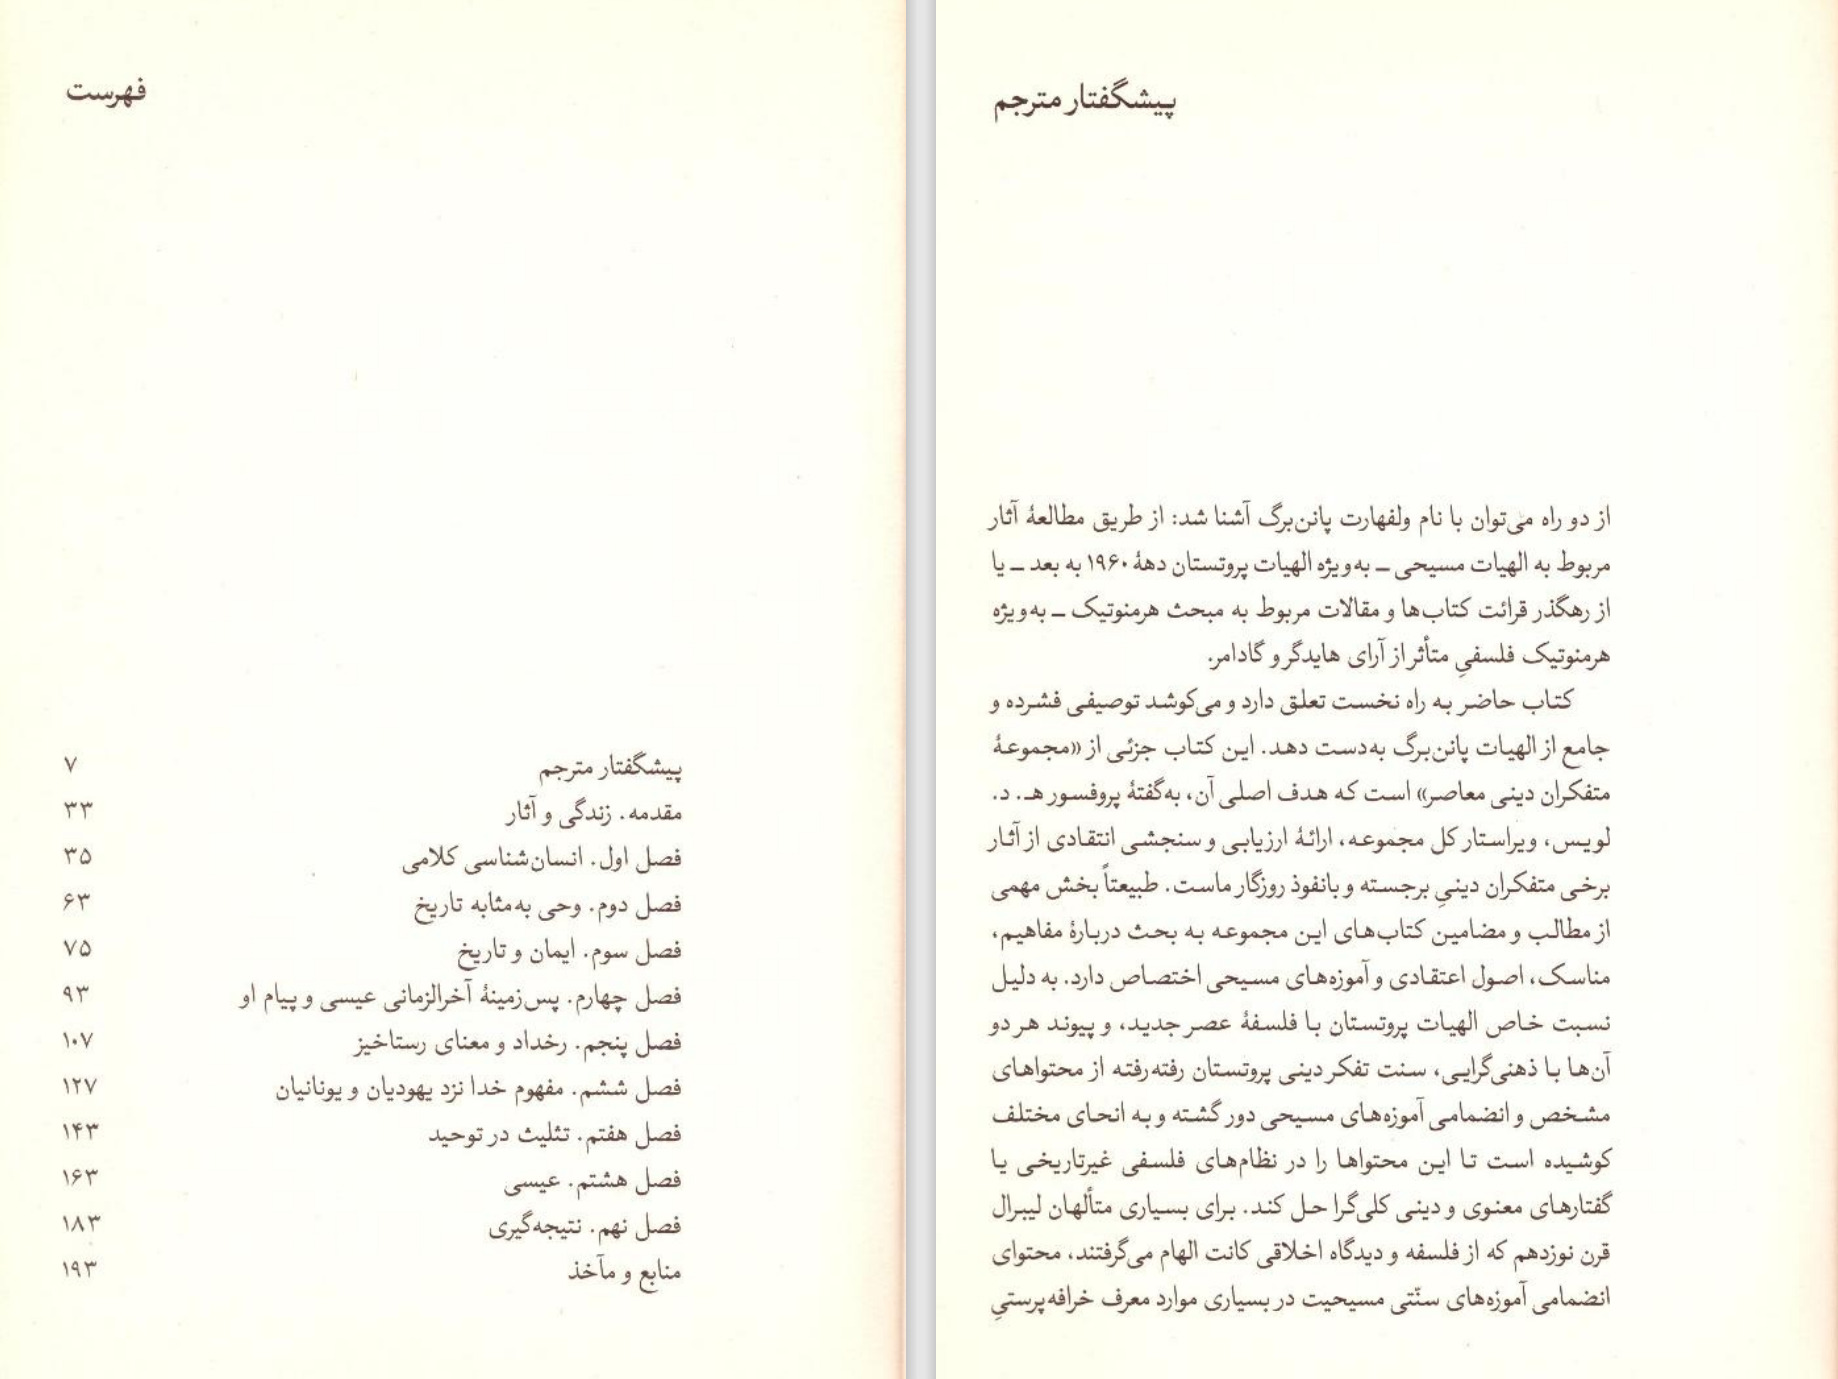 فهرست
پیشگفتار مترجم ۷
مقدمه. زندگی و آثار ۳۳
فصل اول. انسان‌شناسی کلامی ۳۵
فصل دوم. وحی به‌مثابه تاریخ ۶۳
فصل سوم. ایمان و تاریخ ۷۵
فصل چهارم. پس‌زمینهٔ آخرالزمانی عیسی و پیام او ۹۳
فصل پنجم. رخداد و معنای رستاخیز ۱۰۷
فصل ششم. مفهوم خدا نزد یهودیان و یونانیان ۱۲۷
فصل هفتم. تثلیث در توحید ۱۴۳
فصل هشتم. عیسی ۱۶۳
فصل نهم. نتیجه‌گیری ۱۸۳
منابع و مآخذ ۱۹۳
پیشگفتار مترجم
از دو راه می‌توان با نام ولفهارت پانن‌برگ آشنا شد: از طریق مطالعهٔ آثار
مربوط به الهیات مسیحی ــ به‌ویژه الهیات پروتستان دههٔ ۱۹۶۰ به بعد ــ یا
از رهگذر قرائت کتاب‌ها و مقالات مربوط به مبحث هرمنوتیک ــ به‌ویژه
هرمنوتیک فلسفیِ متأثر از آرای هایدگر و گادامر.
کتاب حاضر به راه نخست تعلق دارد و می‌کوشد توصیفی فشرده و
جامع از الهیات پانن‌برگ به‌دست دهد. این کتاب جزئی از «مجموعهٔ
متفکران دینی معاصر» است که هدف اصلی آن، به‌گفتهٔ پروفسور هـ. د.
لویس، ویراستار کل مجموعه، ارائهٔ ارزیابی و سنجشی انتقادی از آثار
برخی متفکران دینیِ برجسته و بانفوذ روزگار ماست. طبیعتاً بخش مهمی
از مطالب و مضامین کتاب‌های این مجموعه به بحث دربارهٔ مفاهیم،
مناسک، اصول اعتقادی و آموزه‌های مسیحی اختصاص دارد. به دلیل
نسبت خاص الهیات پروتستان با فلسفهٔ عصر جدید، و پیوند هر دو
آن‌ها با ذهنی‌گرایی، سنت تفکر دینی پروتستان رفته‌رفته از محتواهای
مشخص و انضمامی آموزه‌های مسیحی دور گشته و به انحای مختلف
کوشیده است تا این محتواها را در نظام‌های فلسفی غیرتاریخی یا
گفتارهای معنوی و دینی کلی‌گرا حل کند. برای بسیاری متألهان لیبرال
قرن نوزدهم که از فلسفه و دیدگاه اخلاقی کانت الهام می‌گرفتند، محتوای
انضمامی آموزه‌های سنّتی مسیحیت در بسیاری موارد معرف خرافه‌پرستیِ